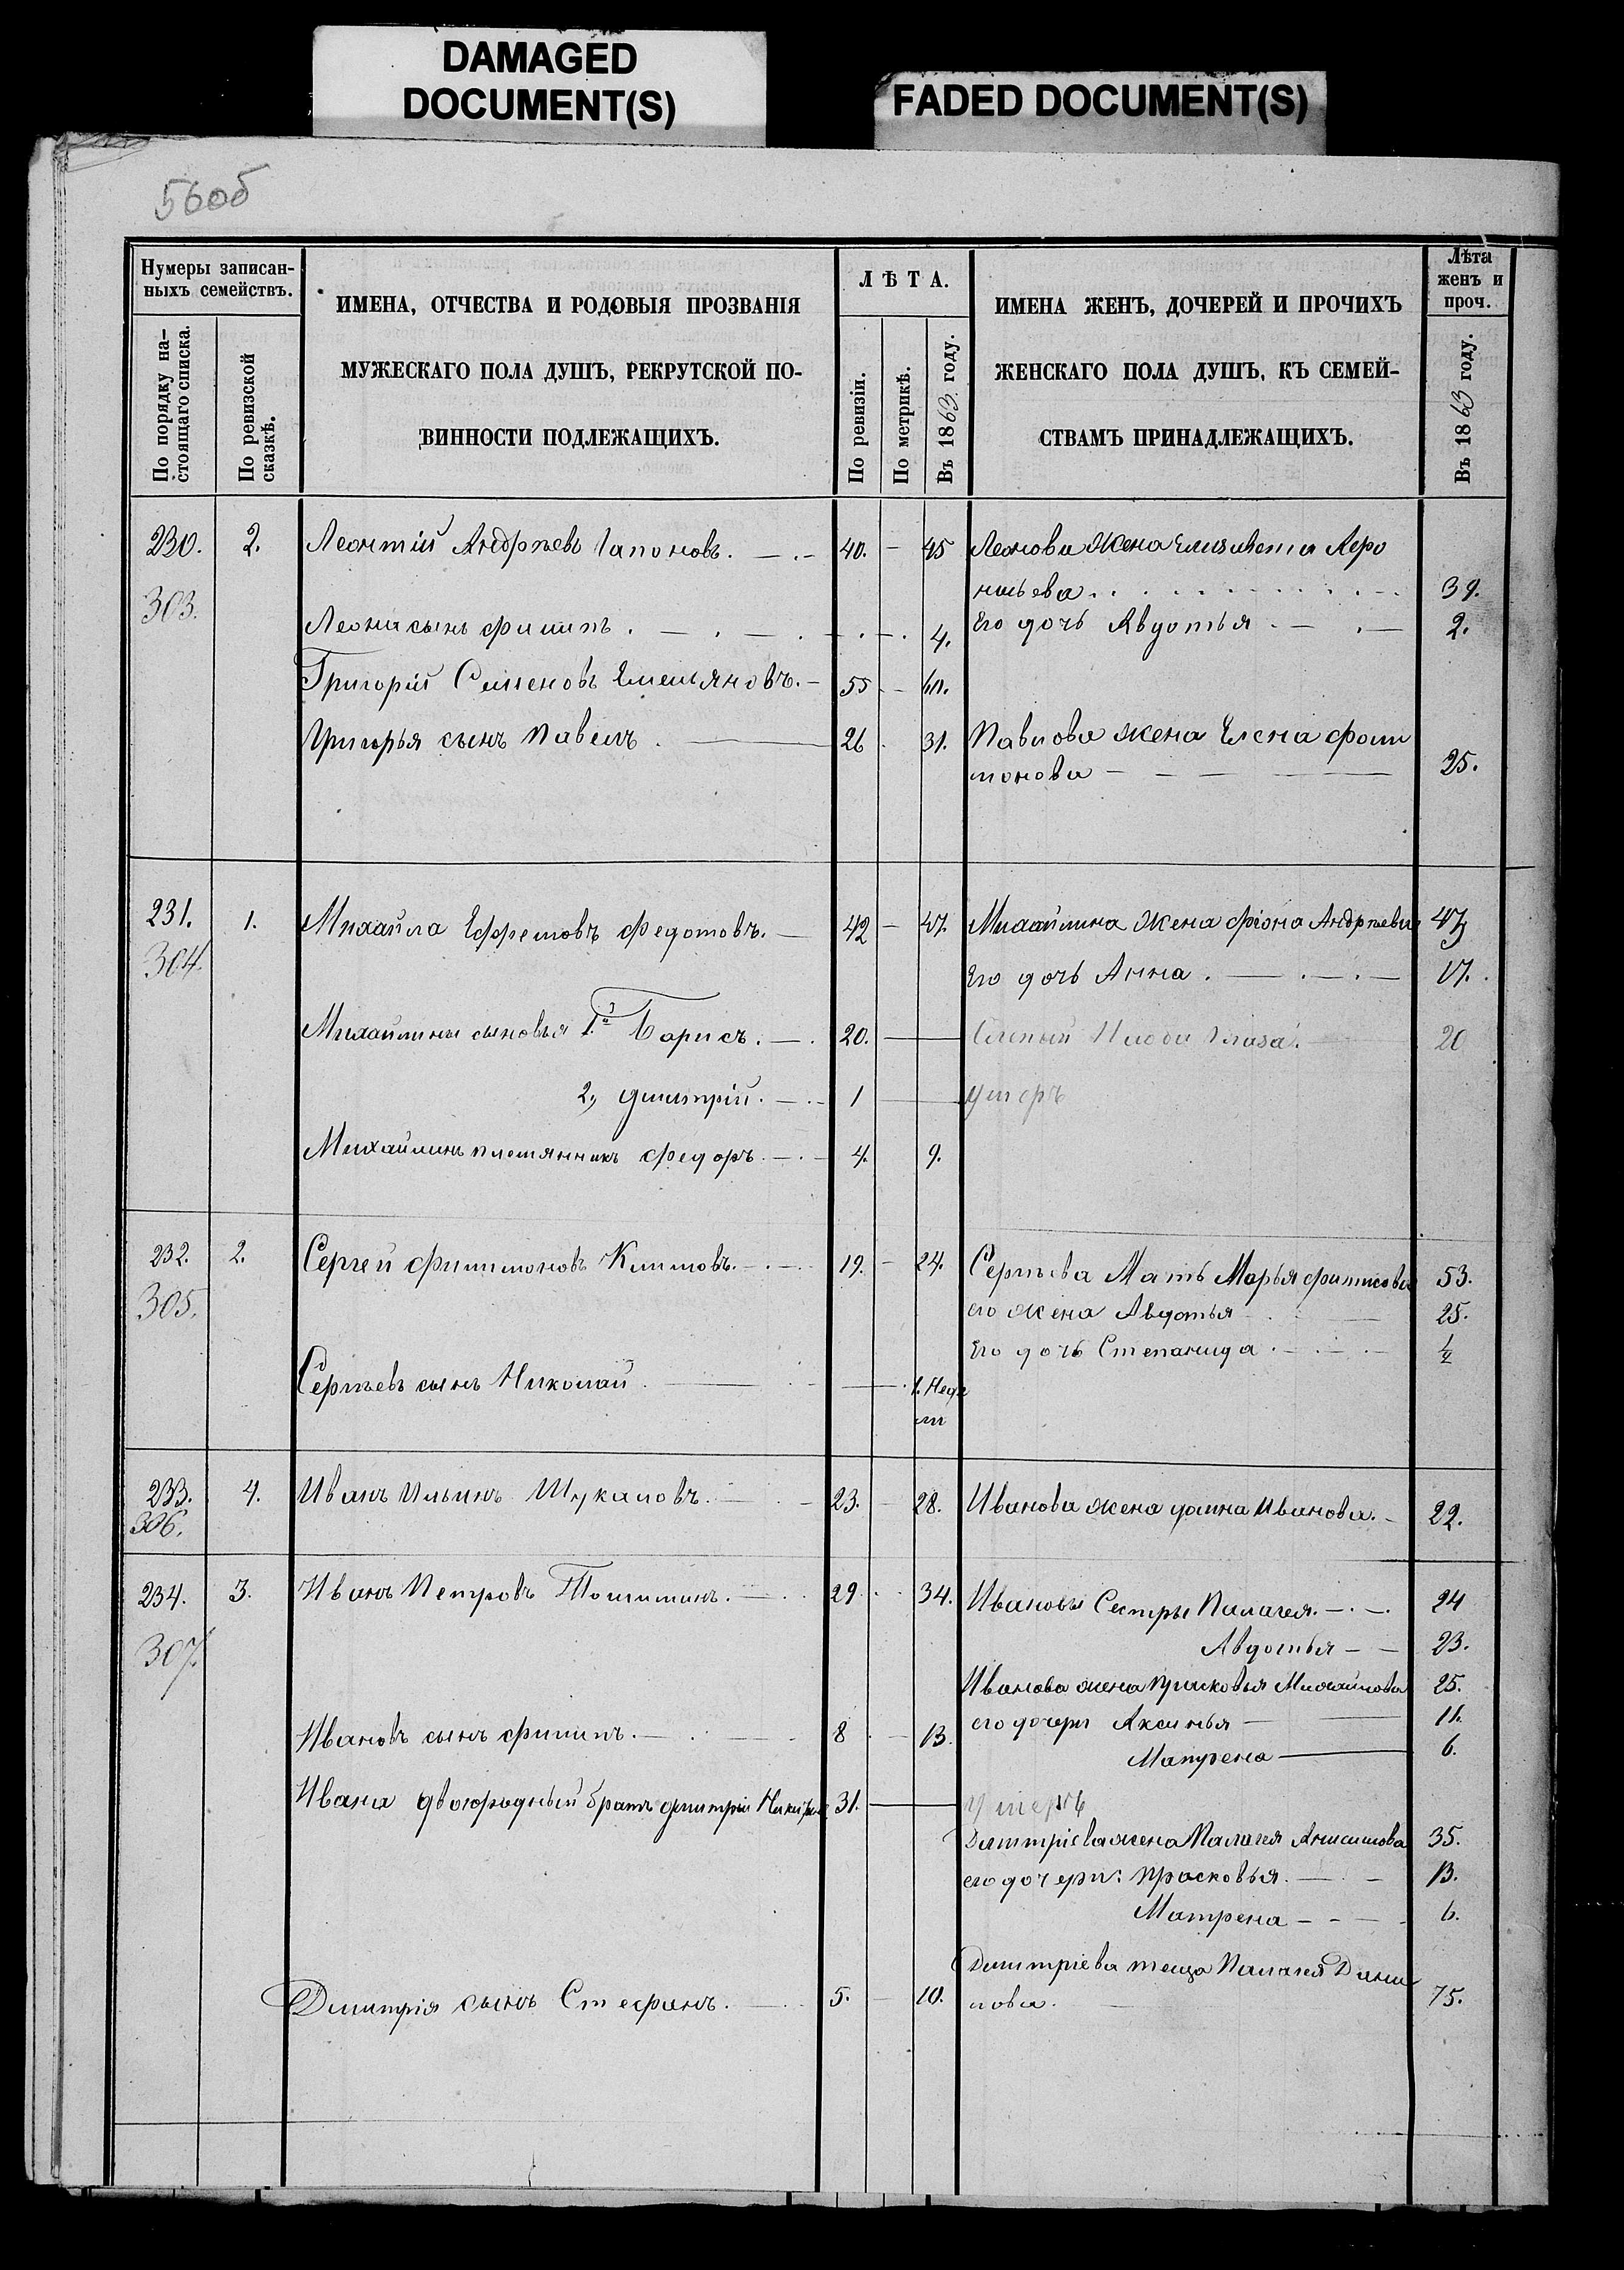 DAMAGED
DOCUMENT(S)
FADED DOCUMENT(S)
56об
Нумеры записан-
ныхъ семействъ.
По порядку на-
стоящаго списка.
По ревизской
сказкѣ.
ИМЕНА, ОТЧЕСТВА И РОДОВЫЯ ПРОЗВАНІЯ
МУЖЕСКАГО ПОЛА ДУШЪ, РЕКРУТСКОЙ ПО-
ВИННОСТИ ПОДЛЕЖАЩИХЪ.
ЛѢТА.
По ревизіи.
По метрикѣ.
Въ 1863 году.
ИМЕНА ЖЕНЪ, ДОЧЕРЕЙ И ПРОЧИХЪ
ЖЕНСКАГО ПОЛА ДУШЪ, КЪ СЕМЕЙ-
СТВАМЪ ПРИНАДЛЕЖАЩИХЪ.
Лѣта
женъ и
проч.
Въ 1863 году.
230. 2. Леонтій Андрѣевъ Гапоновъ. 40. – 45 Леонова Жена Елизавета
303. 39.
Леона сынъ Филипъ. 4. Его дочь Авдотья 2.
Григорій Семеновъ Емельяновъ. 55 – 60.
Григорья сынъ Павелъ. 26 31. Павлова жена Елена Фили
монова 25.
231. 1. Михайла Ефремовъ Федотовъ. 42 – 47. Михайлина Жена Фіона Андрѣева 47
304. Его дочь Анна. 17.
Михайлины сыновья 1.й Борисъ. 20. Слепый глаза. 20
2, Дмитрій. 1 умеръ
Михайлинъ племянникъ Федоръ 4. 9.
232. 2. Сергей Филимоновъ Климовъ. 19. – 24. Сергѣева Мать Марья 53.
305. его жена Авдотья 25.
Его дочь Степанида ½
Сергѣевъ сынъ Николай 1. Неде
ли
233. 4. Иванъ Ильинъ Шукаловъ. 23. 28. Иванова жена Ивановна. 22.
306.
234. 3. Иванъ Петровъ 29 34. Ивановы Сестры Палагея. 24
307. Авдотья 23.
Иванова жена Прасковья Михайлова 25.
Ивановъ сынъ Филипъ. 8 13. его дочери Аксинья 11.
Матрена 6.
Ивана двоюродный братъ Дмитрій 31. умеръ
Дмитріева жена Палагея Анисимова 35.
его дочери: Прасковья. 13.
Матрена 6.
Дмитріева теща Палагея Дани
Дмитрія сынъ Стефанъ. 5. 10. лова. 75.